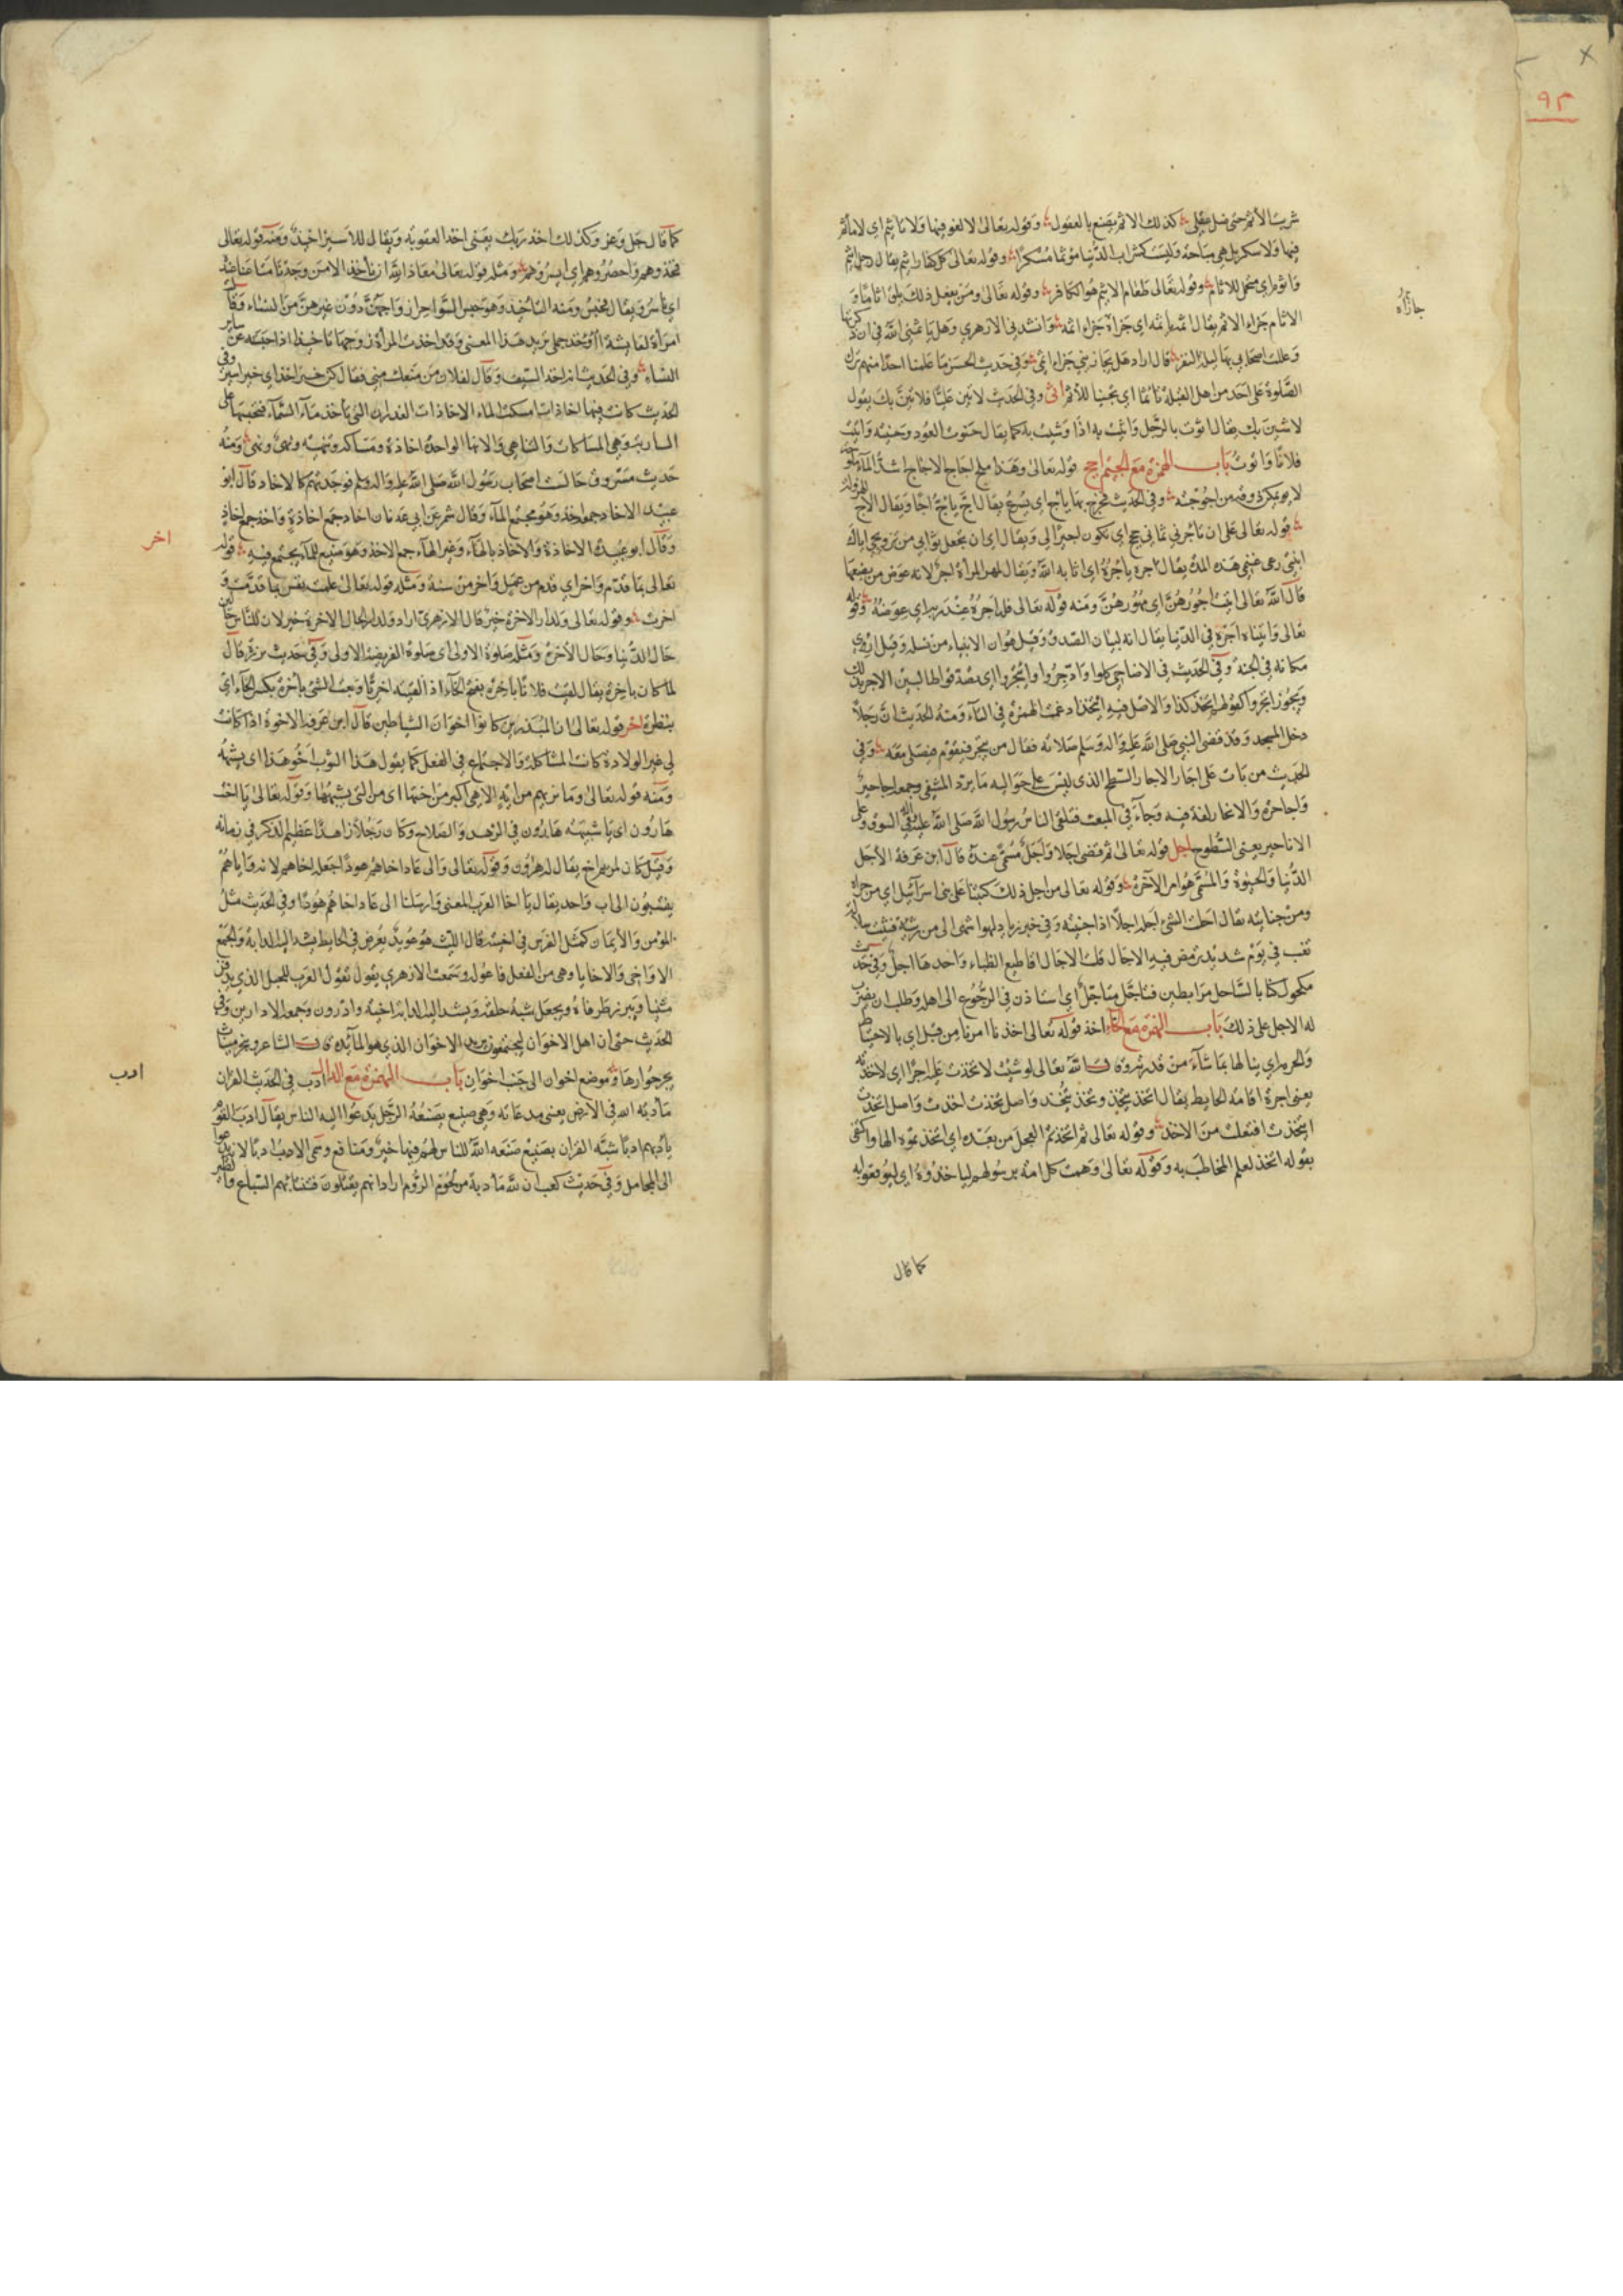 شربت الأثم حتى ضل عقلي كذلك الاثم يصنع بالعقول وقوله تعالى لا لغو فيها ولا تأثيم اي لا مأثم
فيها ولا سكر بل هي مباحة وليست كشراب الدنيا مؤثما مسكرا وقوله تعالى كل كفار اثيم يقال رجل اثيم
واثوم اي متحمل للاثام وقوله تعالى طعام الاثيم هو الكافر وقوله تعالى ومن يفعل ذلك يلق اثاما و
جازاه
الاثام جزاء الاثم يقال اثمه يأثمه اي جزاه جزاء اثمه وانشدني الازهري وهل يأثمني الله في ان ذكرتها
وعللت اصحابي بها ليلة النفر قال اراد هل يجازيني جزاء اثمي وفي حديث الحسن ما علمنا احدا منهم ترك
الصلوة على احد من اهل القبلة تأثما اي تجنبا للأثم اثى وفي الحديث لاتين عليا فلاثين بك يقول
لاشين بك يقال اثوت بالرجل واثيت به اذا وشيت به كما يقال حنوت العود وحنيته واثيت
فلانا واثوت باب الهمزة مع الجيم اجج قوله تعالى وهذا ملح اجاج الاجاج اشد الماء ملوحة
وفي الحديث فخرج بها يأج اي يسرع يقال اج يأج اجا ويقال الاج الهرولة
قوله تعالى على ان تأجرني ثماني حجج اي تكون لي اجيرا ويقال اي ان تجعل ثوابي من تزويجي اياك
ابنتي رعي غنمي هذه المدة يقال اجره يأجره اي اثابه الله ويقال لمهر المرأة اجر لانه عوض من بضعها
قال الله تعالى اتيت اجورهن اي مهورهن ومنه قوله تعالى فله اجره عند ربه اي عوضه وقوله
تعالى واتيناه اجره في الدنيا يقال انه لسان الصدق وقيل هو ان الانبياء من نسله وقيل اري
مكانه في الجنة وفي الحديث في الاضاحي كلوا وادخروا وأتجروا اي تصدقوا طالبين الاجر بذلك
ويجوز اتجروا كقولهم اتخذ كذا والاصل فيه ائتخذ ادغمت الهمزة في التاء ومنه الحديث ان رجلا
دخل المسجد وقد قضى النبي صلى الله عليه واله وسلم صلاته فقال من يتجر فيقوم فيصلي معه وفي
الحديث من بات على اجار الاجار السطح الذي ليس على حواليه ما يرد المشفي وجمعه اجاجير
واجاجرة والانجار لغة فيه وجاء في المبعث فتلقى الناس رسول الله صلى الله عليه وسلم في السوق وعلى
الاناجير يعني السطوح اجل قوله تعالى ثم قضى اجلا واجل مسمى عنده قال ابن عرفة الأجل
الدنيا والحيوة والمسمى هو امر الآخرة وقوله تعالى من اجل ذلك كتبنا على بني اسرائيل اي من جراء
تعب في يوم شديد ترمض فيه الاجال قلت الاجال اقاطيع الظباء واحدها اجل وفي حديث
مكحول كنا بالساحل مرابطين فتأجل متأجل اي استاذن في الرجوع الى اهله وطلب ان يضرب
له الاجل على ذلك باب الهمزة مع الخاء اخذ قوله تعالى اخذنا امرنا من قبل اي بالاحتياط
والحرم اي ينالها بما شاء من قدرته وقال الله تعالى لو شئت لاتخذت عليه اجرا اي لاخذته
يعني اجرة اقامة الحايط يقال اتخذ يتخذ وتخذ يتخذ واصل تخذت اخذت واصل اتخذت
ايتخذت افتعلت من الاخذ وقوله تعالى ثم اتخذتم العجل من بعده اي اتخذتموه الها واكتفى
بقوله اتخذ لعلم المخاطب به وقوله تعالى وهمت كل امة برسولهم لياخذوه اي ليوقعوا به
كما قال
كما قال جل وعز وكذلك اخذ ربك يعني اخذ العقوبة ويقال للاسير اخيذ ومنه قوله تعالى
فخذوهم واحصروهم اي ايسروهم ومثله قوله تعالى معاذ الله ان نأخذ الا من وجدنا متاعنا عنده
اي ناسر ويقال نحبس ومنه التأخيذ وهو حبس السواحر ازواجهن دون غيرهن من النساء وقالت
امرأة لعايشة أأوخذ جملي تريد هذا المعنى وقد اخذت المرأة زوجها تاخيذا اذا حبسته عن ساير
النساء وفي الحديث انه اخذ السيف وقال لفلان من منعك مني فقال كن خير اخذ اي خير اسر وفي
الحديث كانت فيها اخاذات امسكت الماء الاخاذات الغدران التي تأخذ ماء السماء فتحبسها على
الساربة وهي المساكات والتناهي والانها الواحدة اخاذة ومساكه وتنهية ونهى ونهي ومنه
حديث مسروق جالست اصحاب رسول الله صلى الله عليه واله وسلم فوجدتهم كالاخاذ قال ابو
عبيد الاخاذ جمعه اخذ وهو مجتمع الماء وقال شمر عن ابي عدنان اخاذ جمع اخاذة واخذ جمع اخاذ
وقال ابو عبيدة الاخاذة والاخاذ بالهاء وغير الهاء جمع الاخذ وهو صنيع للماء يجتمع فيه قوله
اخر
تعالى بما قدم واخر اي قدم من عمل واخر من سنة ومثله قوله تعالى علمت نفس ما قدمت و
اخرت وقوله تعالى ولدار الاخرة خير قال الازهري اراد ولدار الحال الاخرة خير لان للناس حالين
حال الدنيا وحال الأخرة ومثله صلوة الاولى اي صلوة الفريضة الاولى وفي حديث برزة قال
لما كان بأخرة يقال لقيت فلانا بأخرة بفتح الخاء اذا لقيته اخريا وبعت الشئ بأخرة بكسر الخاء اي
بنظرة اخو قوله تعالى ان المبذرين كانوا اخوان الشياطين قال ابن عرفة الاخوة اذا كانت
في غير الولادة كانت المشاكلة والاجتماع في الفعل كما يقول هذا الثوب اخو هذا اي يشبهه
ومنه قوله تعالى وما نريهم من اية الا هي اكبر من اختها اي من التي يشبهها وقوله تعالى يا اخت
هارون اي يا شبيهة هارون في الزهد والصلاح وكان رجلا زاهدا عظيم الذكر في زمانه
وقيل كان لمريم اخ يقال له هرون وقوله تعالى والى عاد اخاهم هودا جعله اخاهم لانه واياهم
ينتسبون الى اب واحد يقال يا اخا العرب المعنى وارسلنا الى عاد اخاهم هودا وفي الحديث مثل
المؤمن والأيمان كمثل الفرس في اخيته قال الليث هو عويد يعرض في الحايط يشد اليه الدابة والجمع
الاواخي والاخايا وهي من الفعل فاعوله وسمعت الازهري يقول تقول العرب للحبل الذي يدفن
مثنيا ويبرز طرفاه ويجعل شبه حلقة ويشد اليه الدابة اخية وادرون وجمعه الادارين وفي
الحديث حتى ان اهل الاخوان ليجتمعون الاخوان الذي هو المائدة قال الشاعر
يجر حوارها وموضع اخوان الى جنب اخوان باب الهمزة مع الدال ادب في الحديث القران
ادب
مأدبة الله في الأرض يعني مدعاته وهي صنيع يصنعه الرجل يدعوا اليه الناس يقال ادب القوم
يأدبهم ادبا شبه القران بصنيع صنعه الله للناس لهم فيها خير ومنافع وسمي الادب ادبا لانه يدعوا
الى المحامل وفي حديث كعب ان لله مأدبة من لحوم الروم اراد انهم يقتلون فتنتابهم السباع والطير